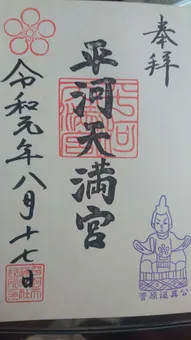 奉拝
平河天満宮
令和元年八月十七日
菅原道真公